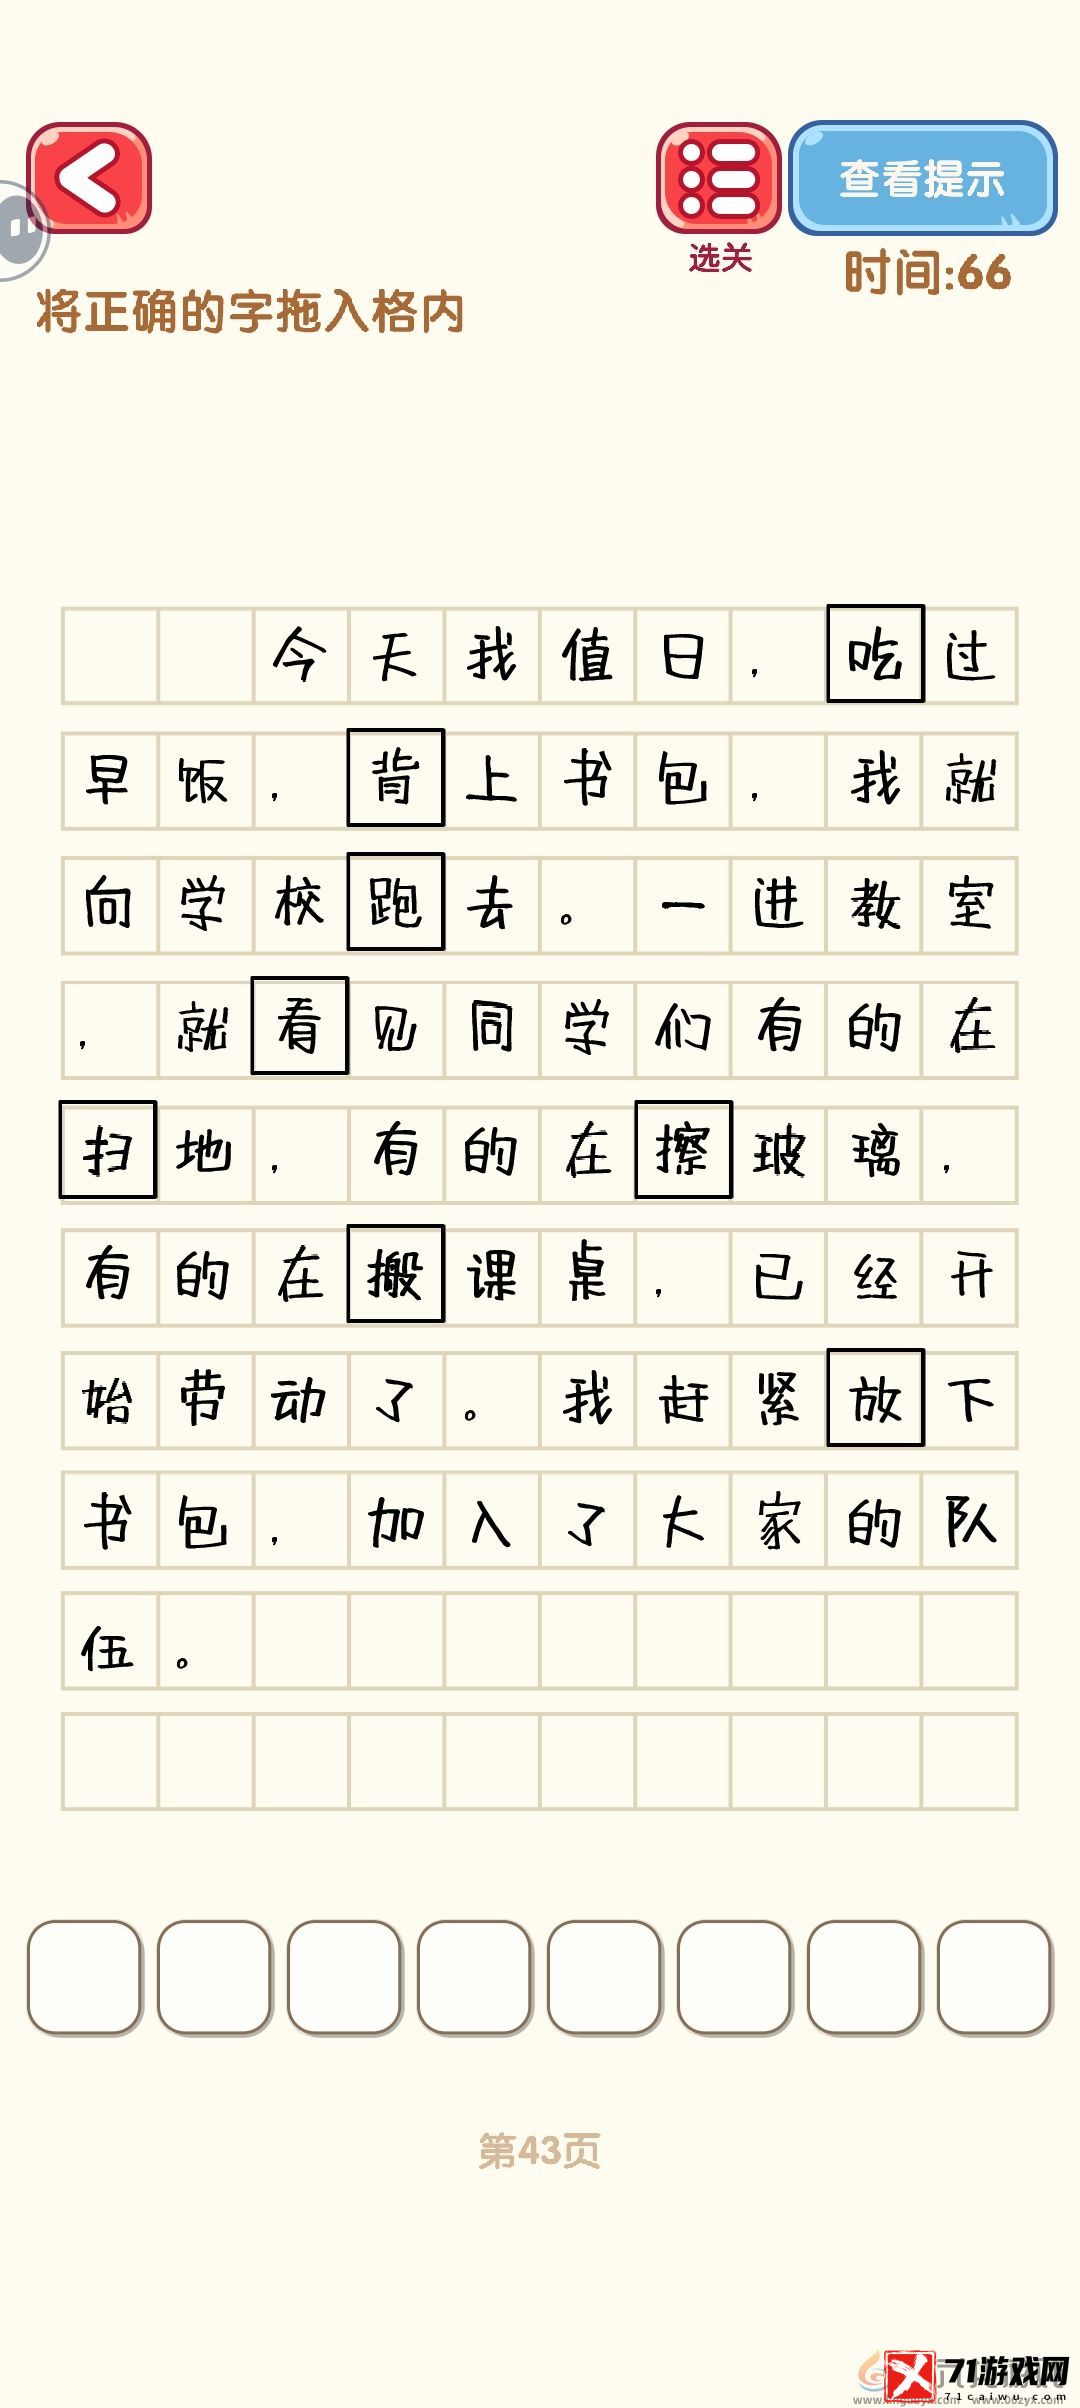 查看提示
选关
时间:66
将正确的字拖入格内
今天我值日，吃过
早饭，背上书包，我就
向学校跑去。一进教室
，就看见同学们有的在
扫地，有的在擦玻璃，
有的在搬课桌，已经开
始劳动了。我赶紧放下
书包，加入了大家的队
伍。
第43页
71游戏网
71caiwu.com